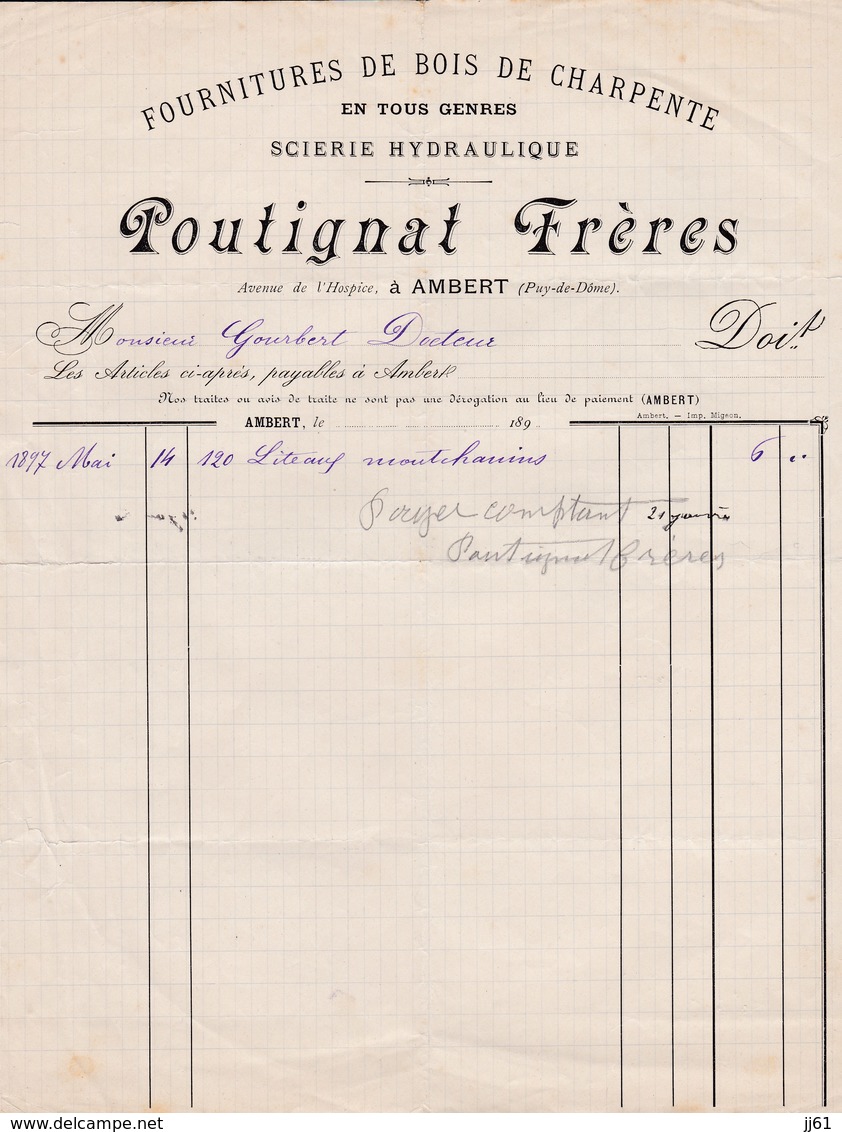 FOURNITURES DE BOIS DE CHARPENTE
EN TOUS GENRES
SCIERIE HYDRAULIQUE
Poutignat Frères
Avenue de l'Hospice, à AMBERT (Puy-de-Dôme).
Monsieur Gourbert Docteur Doit
Les Articles ci-après, payables à Ambert
Nos traites ou avis de traite ne sont pas une dérogation au lieu de paiement (AMBERT)
Ambert. — Imp. Migeon.
AMBERT, le 189
1897 Mai 14 120 Liteaux montchanins 6 "
Payer comptant 21 janvier
Poutignat frères
delcampe.net
jj61